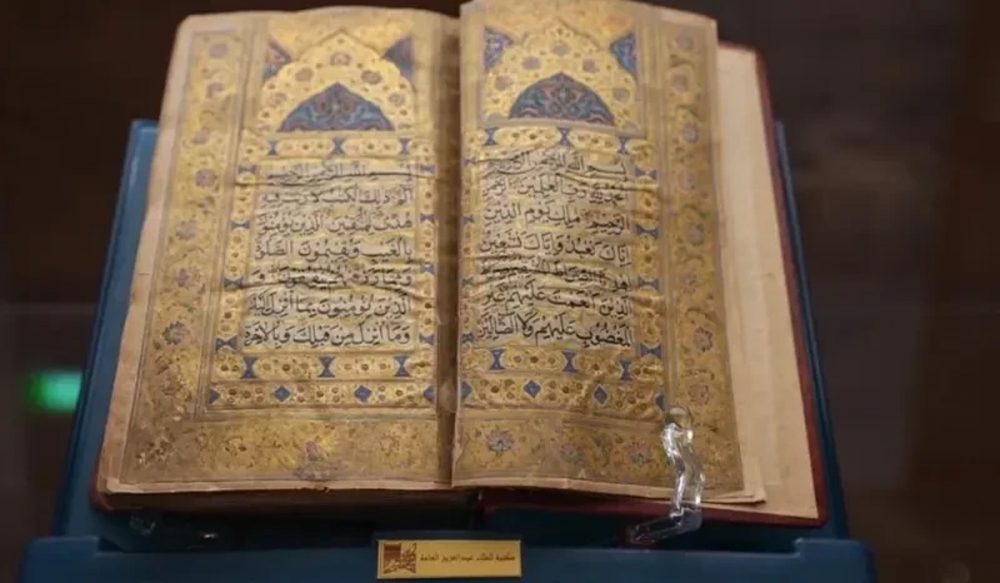 بسم الله الرحمن الرحيم
الحمد لله رب العلمين الرحمن
الرحيم ملك يوم الدين
اياك نعبد واياك نستعين
اهدنا الصراط المستقيم
الذين انعمت عليهم غير
المغضوب عليهم ولا الضالين
بسم الله الرحمن الرحيم
الم ذلك الكتب لا ريب فيه
هدى للمتقين الذين يؤمنون
بالغيب ويقيمون الصلوة
ومما رزقنهم ينفقون
الذين يؤمنون بما انزل اليك
وما انزل من قبلك وبالاخرة
مكتبة الملك عبدالعزيز العامة